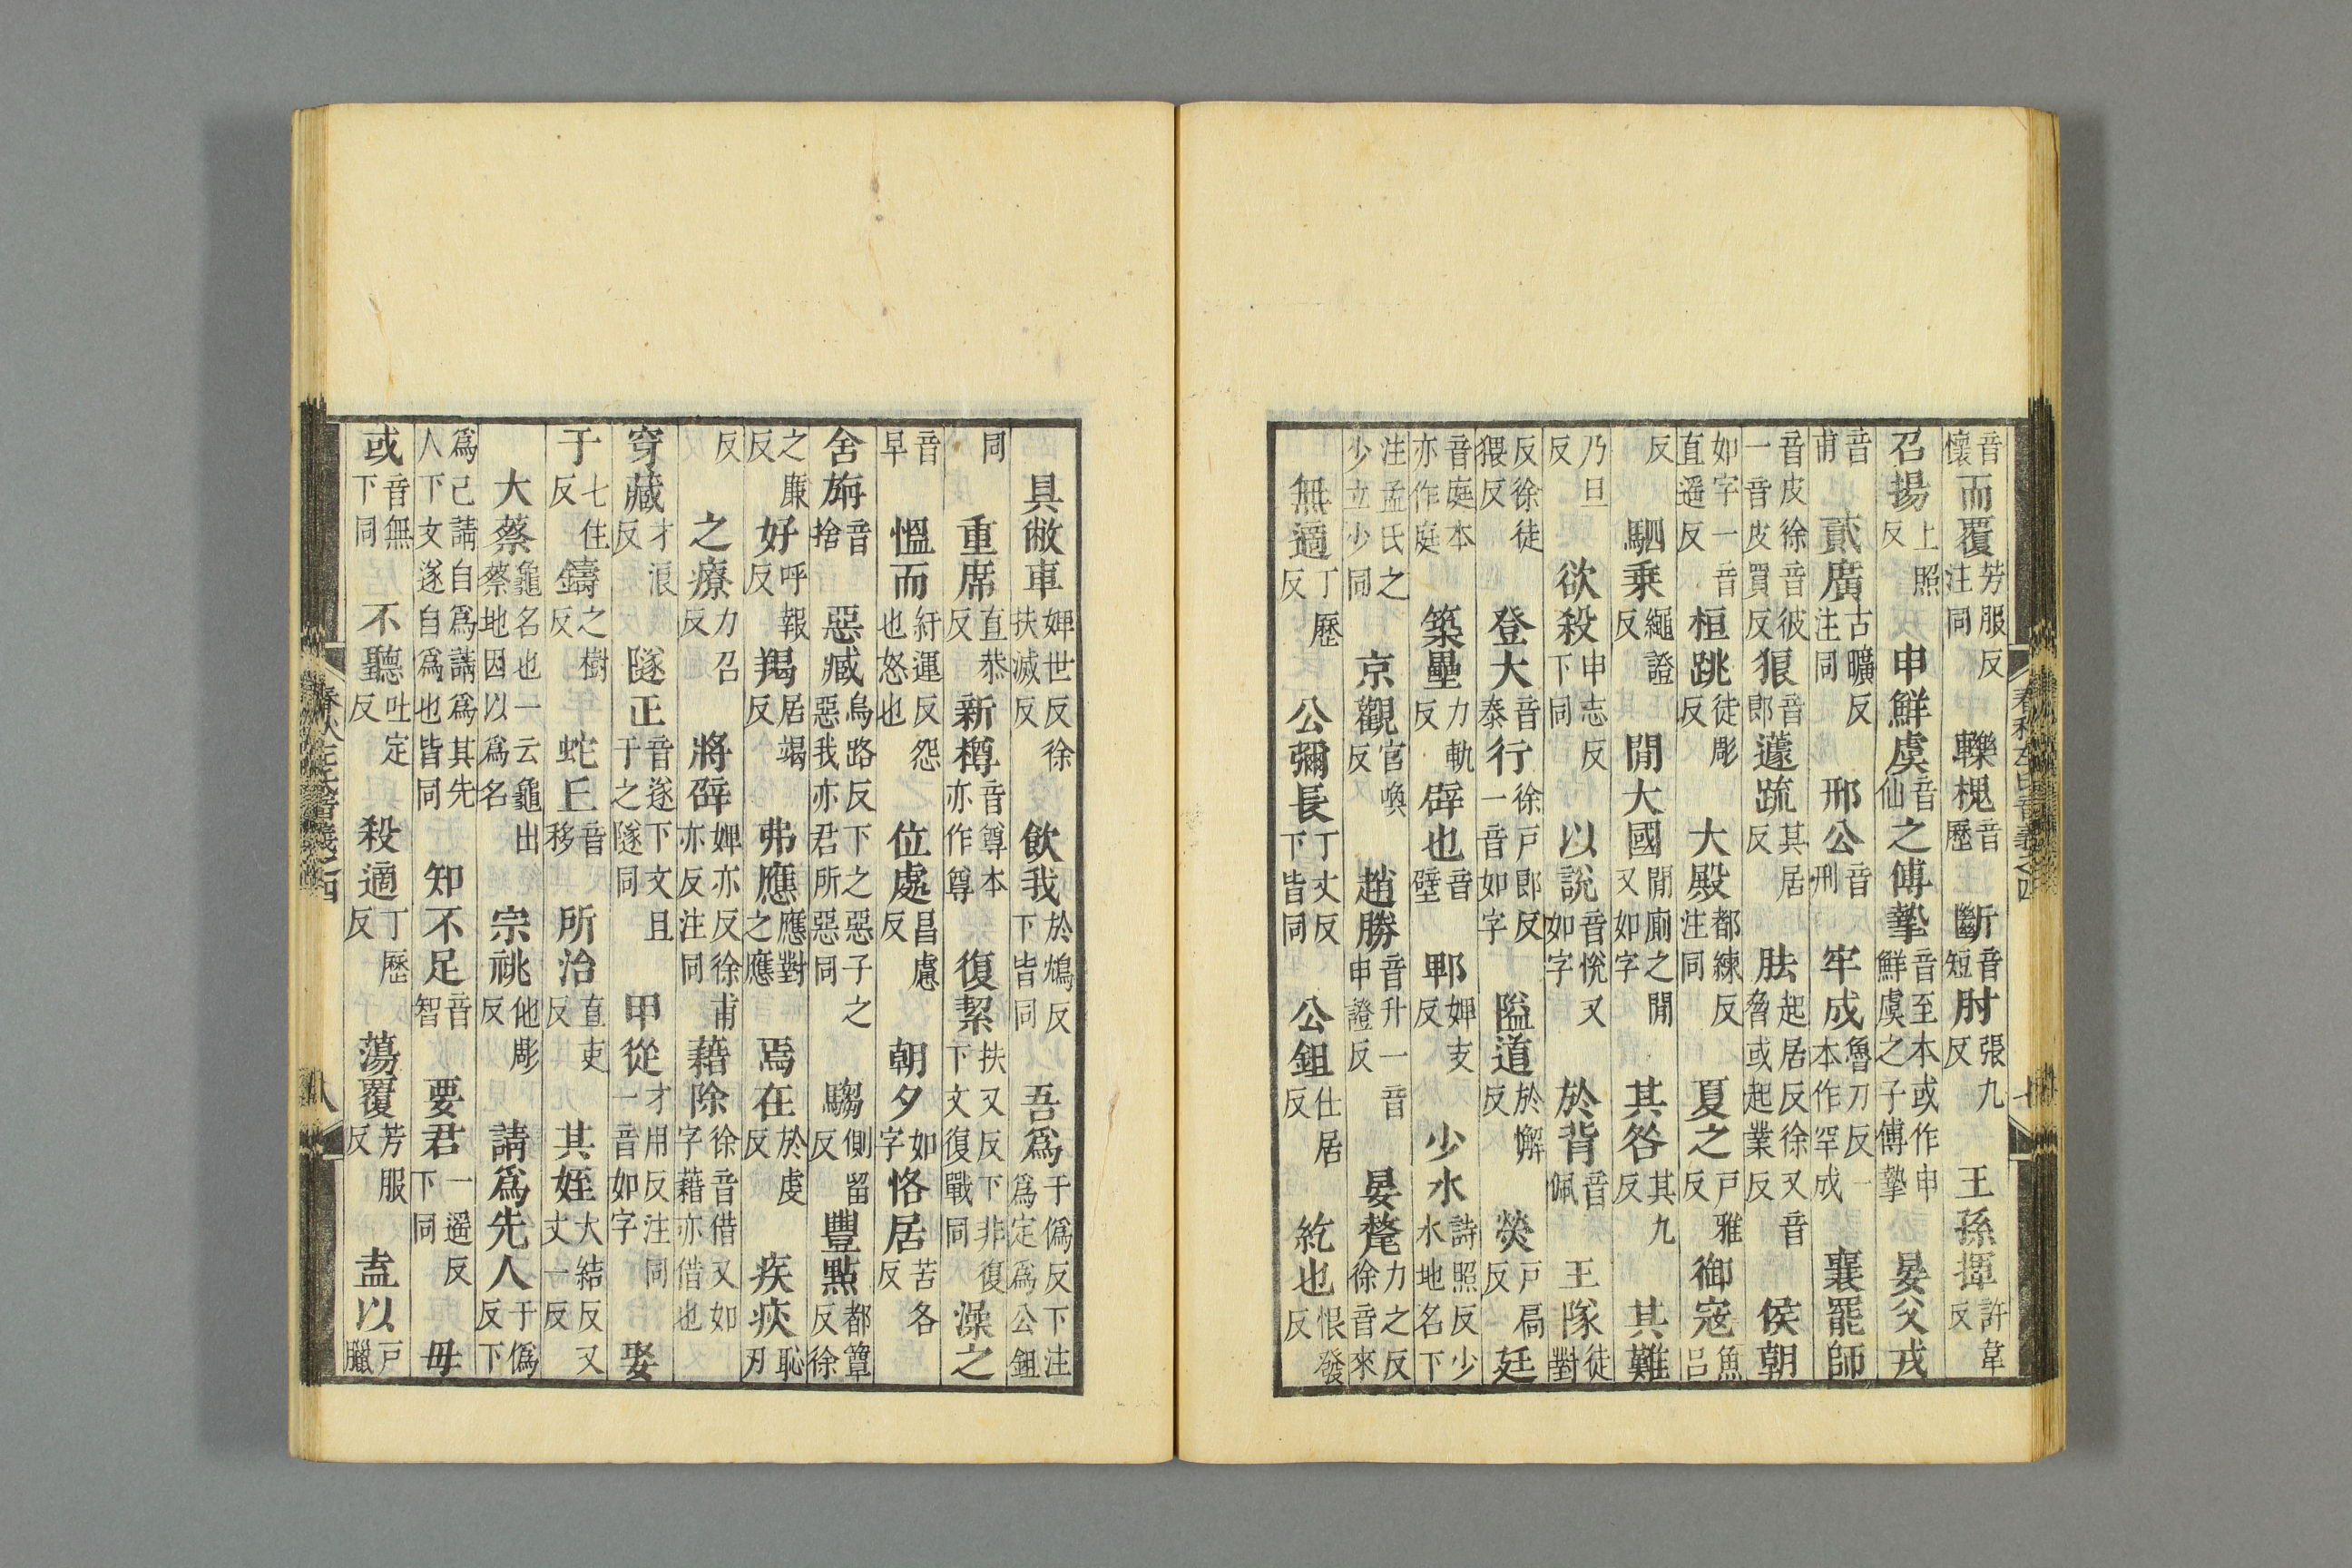 春秋左氏音義之四 七
音懷而覆芳服反注同轢槐音歷斷音短肘張九反王孫揮許韋反
召揚上照反申鮮虞音仙之傅摯音至本或作申鮮虞之子傅摯晏父戎
音甫貳廣古曠反注同邢公音刑牢成魯刀反一本作罕成襄罷師
音皮徐音彼一音皮買反狼音郎蘧疏其居反胠起居反徐又音脅或起業反侯朝
如字一音直遥反桓跳徒彫反大殿都練反注同夏之戸雅反御寇魚呂
反駟乗繩證反閒大國閒廁之閒又如字其咎其九反其難
乃旦反欲殺申志反下同以說音悅又如字於背音佩王隊徒對
反徐徒猥反登大音泰行徐戸郎反一音如字隘道於懈反熒戸扃反廷
音庭本亦作庭築壘力軌反辟也音壁郫婢支反少水詩照反少水地名下
注孟氏之少立少同京觀官喚反趙勝音升一音申證反晏氂力之反徐音來
無適丁歷反公彌長丁丈反下皆同公鉏仕居反紇也恨發反
具敝車婢世反徐扶滅反飲我於鴆反下皆同吾爲于僞反下注爲定爲公鉏
同重席直恭反新樽音尊本亦作尊復絜扶又反下非復下文復戰同澡之
音早慍而紆運反怨也怒也位處昌慮反朝夕如字恪居苦各反
舍旃音捨惡臧烏路反下之惡子之惡我亦君所惡同騶側留反豐點都簟反徐
之廉反好呼報反羯居竭反弗應應對之應焉在於虔反疾疢恥刃
反之療力召反將辟婢亦反徐甫亦反注同藉除徐音借又如字藉亦借也
穿藏才浪反隧正音遂下文且于之隧同甲從才用反注同一音如字娶
于七住反鑄之樹反蛇丘音移所治直吏反其姪大結反又丈一反
大蔡龜名也一云龜出蔡地因以爲名宗祧他彫反請爲先人于僞反下
爲己請自爲請爲其先人下文遂自爲也皆同知不足音智要君一遥反下同毋
或音無下同不聽吐定反殺適丁歷反蕩覆芳服反盍以戸臘
春秋左氏音義之四 八